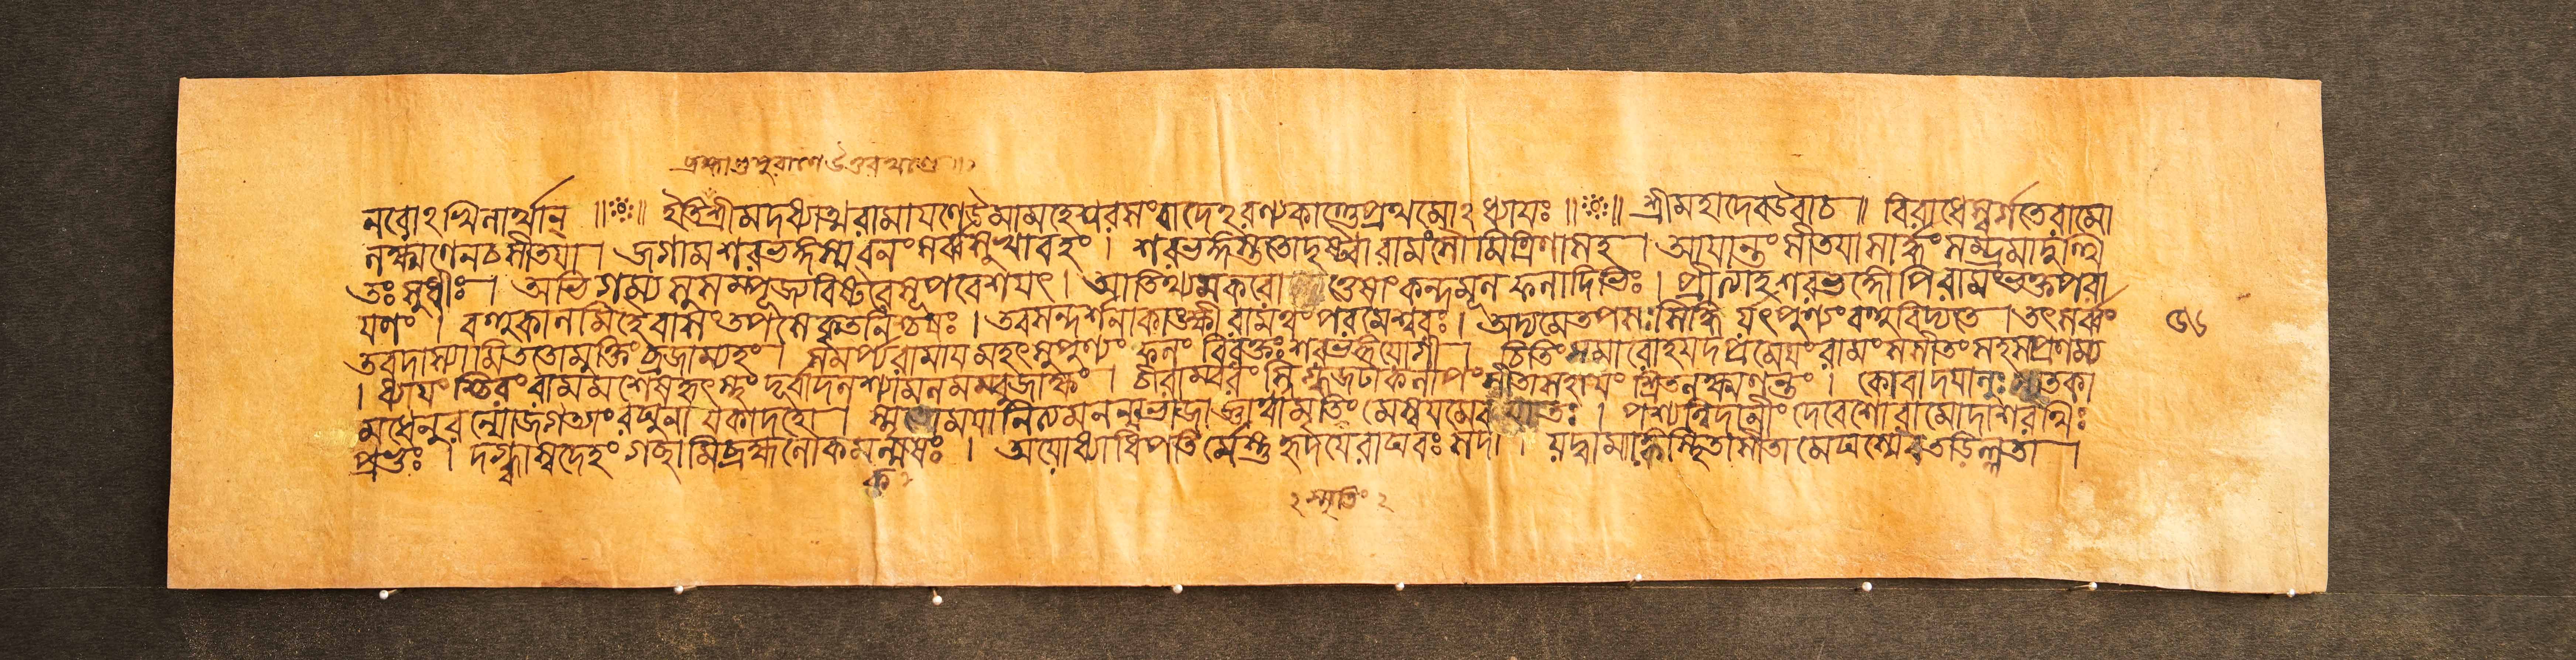 ব্রহ্মাণ্ডপুরাণে উত্তরখণ্ডে
নরোঽখিলার্থান্ ॥ ॥ ইতি শ্রীমদধ্যাত্মরামায়ণে উমামহেশ্বরসংবাদেঽরণ্যকাণ্ডে প্রথমোঽধ্যায়ঃ ॥ ॥ শ্রীমহাদেব উবাচ ॥ বিরাধে স্বর্গতে রামো
লক্ষ্মণেন চ সীতয়া । জগাম শরভঙ্গস্য বনং সর্ব্বসুখাবহং । শরভঙ্গস্ততো দৃষ্ট্বা রামং সৌমিত্রিণা সহ । আয়ান্তং সীতয়া সার্দ্ধং সম্ভ্রমাদুত্থি
তঃ সুধীঃ । অভিগম্য সুসম্পূজ্য বিষ্টরেষূপবেশয়ৎ । আতিথ্যমকরো ত্তেষাং কন্দমূলফলাদিভিঃ । প্রীত্যাহ শরভঙ্গোপি রামং ভক্তপরা
য়ণং । বহুকালমিহৈবাসং তপসে কৃতনিশ্চয়ঃ । তব সন্দর্শনাকাঙ্ক্ষী রাম ত্বং পরমেশ্বরঃ । অদ্য মে তপসঃ সিদ্ধি র্যৎপুণ্যং বহু বিদ্যতে । তৎসর্ব্বং
তব দাস্যামি ততো মুক্তিং ব্রজাম্যহং । সমর্প্য রামায় মহৎসুপুণ্যং ফলং বিরক্তঃ শরভঙ্গযোগী । চিতিং সমারোহয়দপ্রমেয়ং রামং সসীতং সহসা প্রণম্য
। ধ্যায়ং শ্চিরং রামমশেষহৃৎস্থং দূর্বাদলশ্যামলমম্বুজাক্ষং । চীরাম্বরং স্নিগ্ধজটাকলাপং সীতাসহায়ং শ্রিতলক্ষ্মণন্তং । কো বা দয়ালুঃ স্মৃতকা
মধেনুরন্যো জগত্যাং রঘুনায়কাদহো । স্মৃতো ময়া নিত্যমনন্যভাজা জ্ঞাত্বা মৃতিং মে স্বয়মেব যাতঃ । পশ্যত্বিদানীং দেবেশো রামো দাশরথিঃ
প্রভুঃ । দগ্ধ্বা স্বদেহং গচ্ছামি ব্রহ্মলোকমল্মষঃ । অয়োধ্যাধিপতির্মেস্তু হৃদয়ে রাঘবঃ সদা । য়দ্বামাঙ্কে স্থিতা সীতা মেঘস্যেব তড়িল্লতা ।
ক
২ স্মৃতিং ২